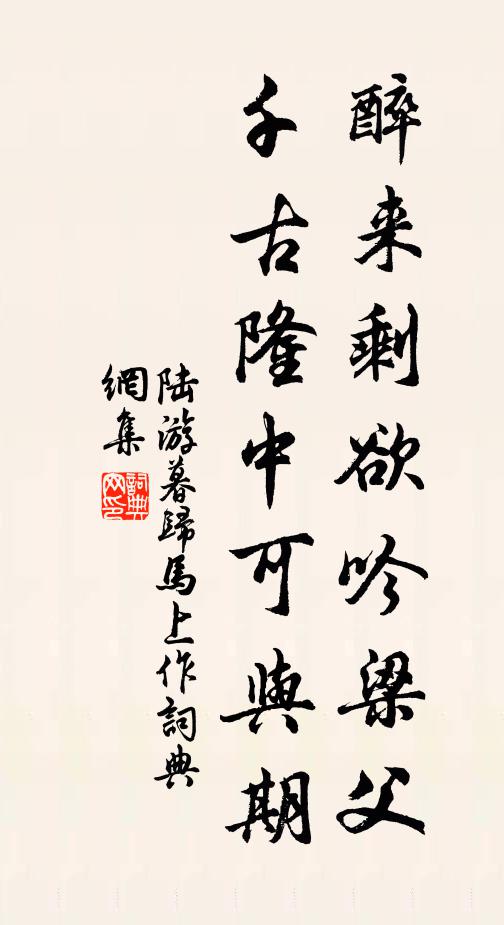 醉来剩欲吟梁父
千古隆中可與期
陆游暮歸馬上作詞典
網集
詞典
网印